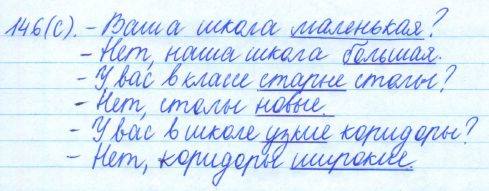 146(С). - Ваша школа маленькая?
- Нет, наша школа большая.
- У вас в классе старые столы?
- Нет, столы новые.
- У вас в школе узкие коридоры?
- Нет, коридоры широкие.